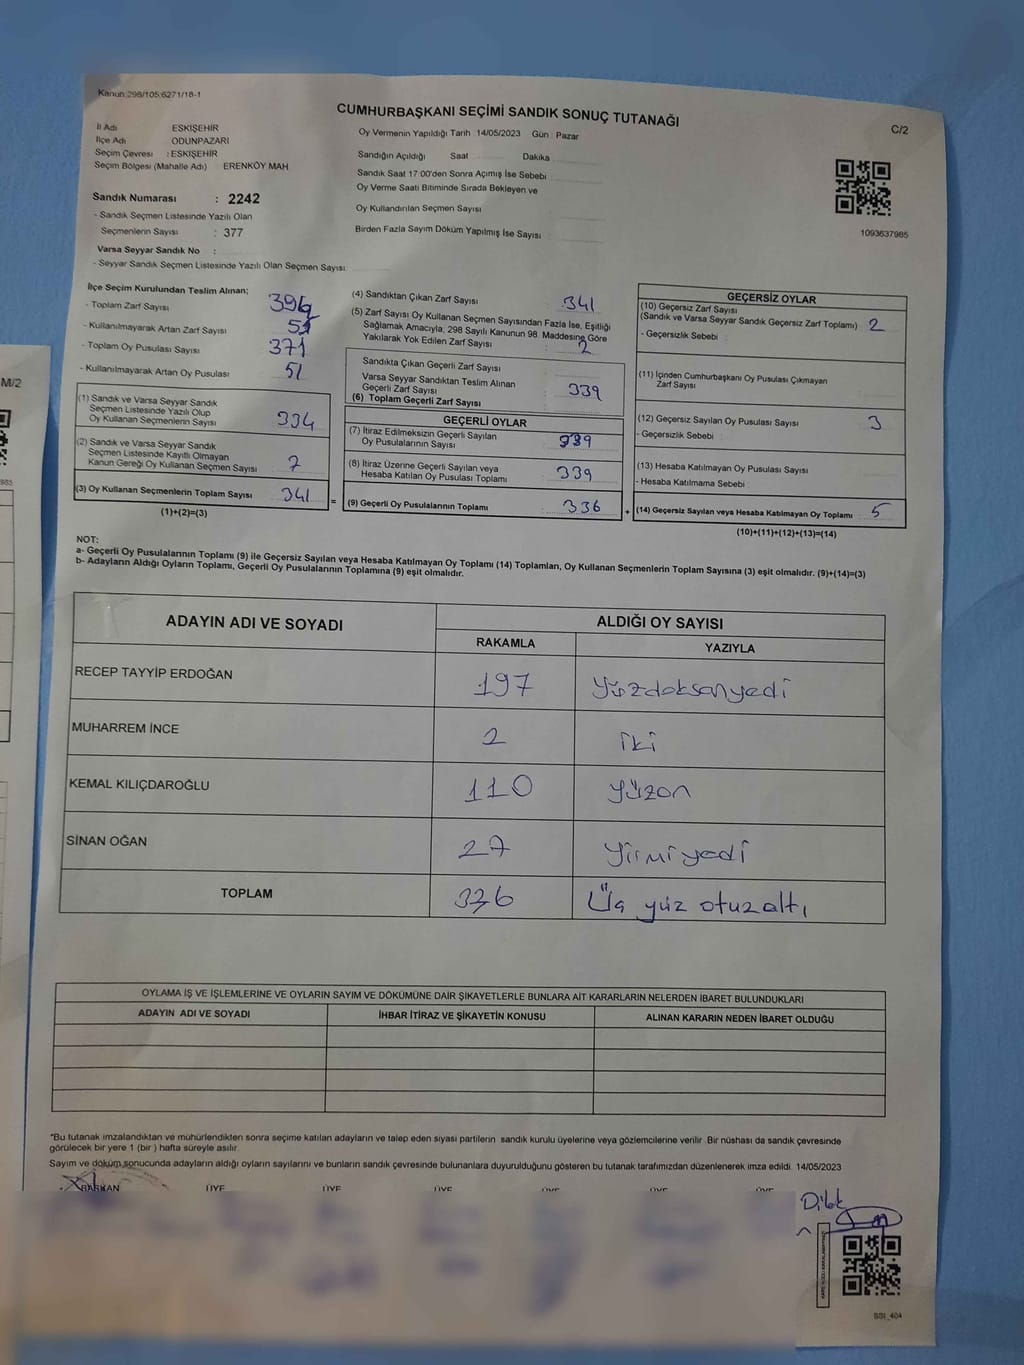 Kanun:298/105;6271/18-1
CUMHURBAŞKANI SEÇİMİ SANDIK SONUÇ TUTANAĞI
C/2
İl Adı ESKİŞEHİR
İlçe Adı ODUNPAZARI
Seçim Çevresi : ESKİŞEHİR
Seçim Bölgesi (Mahalle Adı) : ERENKÖY MAH
Sandık Numarası : 2242
- Sandık Seçmen Listesinde Yazılı Olan
Seçmenlerin Sayısı : 377
Varsa Seyyar Sandık No :
- Seyyar Sandık Seçmen Listesinde Yazılı Olan Seçmen Sayısı:
Oy Vermenin Yapıldığı Tarih : 14/05/2023 Gün : Pazar
Sandığın Açıldığı Saat Dakika
Sandık Saat 17:00'den Sonra Açımış İse Sebebi
Oy Verme Saati Bitiminde Sırada Bekleyen ve
Oy Kullandırılan Seçmen Sayısı
Birden Fazla Sayım Döküm Yapılmış İse Sayısı :
1093637985
İlçe Seçim Kurulundan Teslim Alınan;
- Toplam Zarf Sayısı
- Kullanılmayarak Artan Zarf Sayısı 51
- Toplam Oy Pusulası Sayısı 371
- Kullanılmayarak Artan Oy Pusulası 51
(1) Sandık ve Varsa Seyyar Sandık
Seçmen Listesinde Yazılı Olup
Oy Kullanan Seçmenlerin Sayısı 334
(2) Sandık ve Varsa Seyyar Sandık
Seçmen Listesinde Kayıtlı Olmayan
Kanun Gereği Oy Kullanan Seçmen Sayısı 7
(3) Oy Kullanan Seçmenlerin Toplam Sayısı 341
(1)+(2)=(3)
(4) Sandıktan Çıkan Zarf Sayısı 341
(5) Zarf Sayısı Oy Kullanan Seçmen Sayısından Fazla İse, Eşitliği
Sağlamak Amacıyla, 298 Sayılı Kanunun 98. Maddesine Göre
Yakılarak Yok Edilen Zarf Sayısı : 2
Sandıkta Çıkan Geçerli Zarf Sayısı
Varsa Seyyar Sandıktan Teslim Alınan
Geçerli Zarf Sayısı
(6) Toplam Geçerli Zarf Sayısı 339
GEÇERLİ OYLAR
(7) İtiraz Edilmeksizin Geçerli Sayılan
Oy Pusulalarının Sayısı 339
(8) İtiraz Üzerine Geçerli Sayılan veya
Hesaba Katılan Oy Pusulası Toplamı 339
= (9) Geçerli Oy Pusulalarının Toplamı 336
GEÇERSİZ OYLAR
(10) Geçersiz Zarf Sayısı
(Sandık ve Varsa Seyyar Sandık Geçersiz Zarf Toplamı) 2
- Geçersizlik Sebebi :
(11) İçinden Cumhurbaşkanı Oy Pusulası Çıkmayan
Zarf Sayısı
(12) Geçersiz Sayılan Oy Pusulası Sayısı 3
- Geçersizlik Sebebi :
(13) Hesaba Katılmayan Oy Pusulası Sayısı
- Hesaba Katılmama Sebebi :
+ (14) Geçersiz Sayılan veya Hesaba Katılmayan Oy Toplamı : 5
(10)+(11)+(12)+(13)=(14)
NOT:
a- Geçerli Oy Pusulalarının Toplamı (9) ile Geçersiz Sayılan veya Hesaba Katılmayan Oy Toplamı (14) Toplamları, Oy Kullanan Seçmenlerin Toplam Sayısına (3) eşit olmalıdır. (9)+(14)=(3)
b- Adayların Aldığı Oyların Toplamı, Geçerli Oy Pusulalarının Toplamına (9) eşit olmalıdır.
ADAYIN ADI VE SOYADI ALDIĞI OY SAYISI
RAKAMLA YAZIYLA
RECEP TAYYİP ERDOĞAN 197 yüzdoksanyedi
MUHARREM İNCE 2 iki
KEMAL KILIÇDAROĞLU 110 yüzon
SİNAN OĞAN 27 yirmiyedi
TOPLAM 336 Üç yüz otuzaltı
OYLAMA İŞ VE İŞLEMLERİNE VE OYLARIN SAYIM VE DÖKÜMÜNE DAİR ŞİKAYETLERLE BUNLARA AİT KARARLARIN NELERDEN İBARET BULUNDUKLARI
ADAYIN ADI VE SOYADI İHBAR İTİRAZ VE ŞİKAYETİN KONUSU ALINAN KARARIN NEDEN İBARET OLDUĞU
*Bu tutanak imzalandıktan ve mühürlendikten sonra seçime katılan adayların ve talep eden siyasi partilerin sandık kurulu üyelerine veya gözlemcilerine verilir. Bir nüshası da sandık çevresinde
görülecek bir yere 1 (bir ) hafta süreyle asılır.
Sayım ve döküm sonucunda adayların aldığı oyların sayılarını ve bunların sandık çevresinde bulunanlara duyurulduğunu gösteren bu tutanak tarafımızdan düzenlenerek imza edildi. 14/05/2023
BAŞKAN ÜYE ÜYE ÜYE ÜYE ÜYE ÜYE
SSI_404
M/2
985